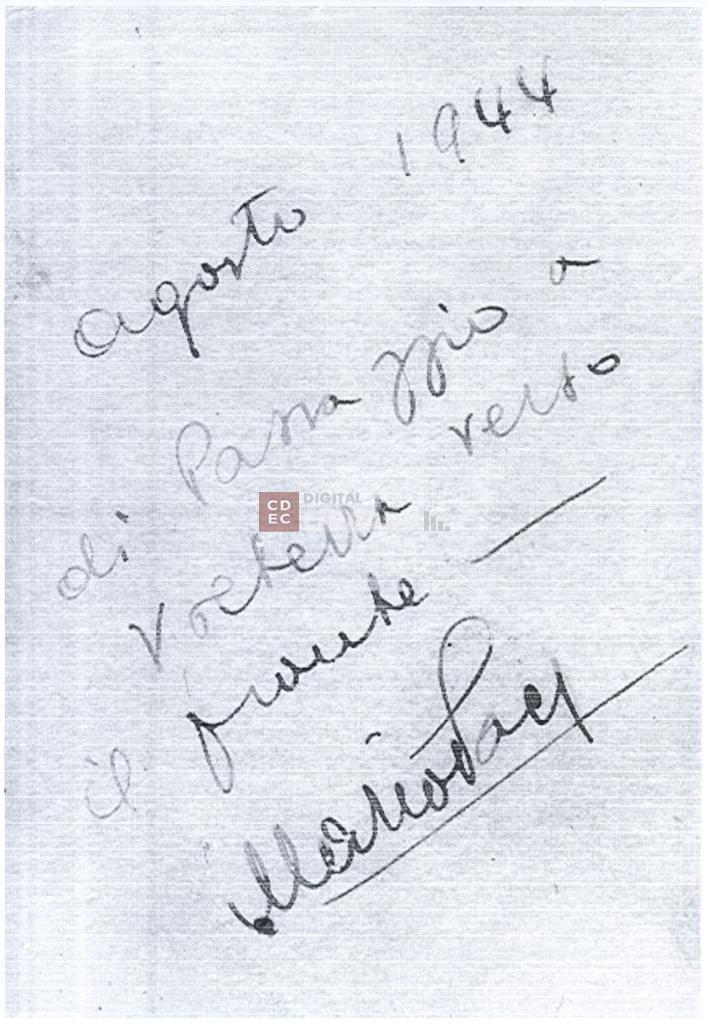 agosto 1944
di Passaggio a
Volterra verso
il fronte —
Mario Pacy
CDEC DIGITAL